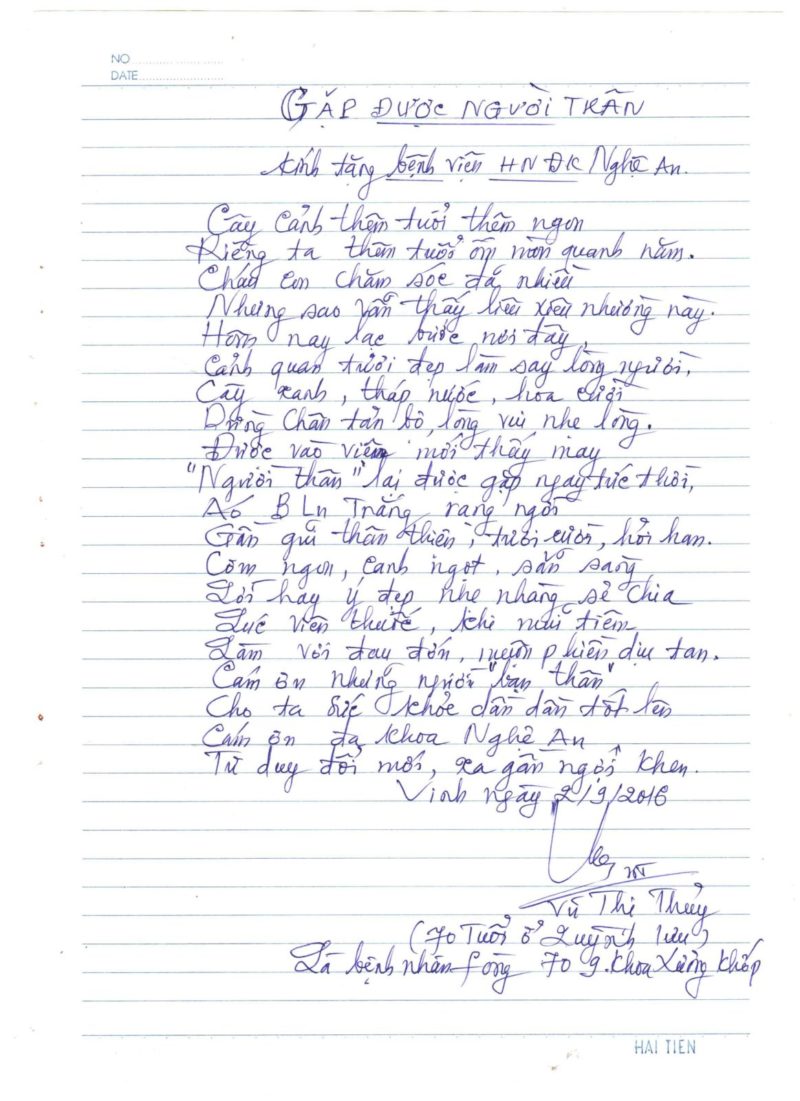 NO
DATE
GẶP ĐƯỢC NGƯỜI THÂN
Kính tặng bệnh viện HN ĐK Nghệ An.
Cây cảnh thêm tuổi thêm ngon
Riêng ta thêm tuổi ốm mòn quanh năm.
Cháu con chăm sóc đã nhiều
Nhưng sao vẫn thấy liêu xiêu nhường này.
Hôm nay lạc bước nơi đây,
Cảnh quan tươi đẹp làm say lòng người,
Cây xanh, tháp nước, hoa cười
Dừng chân tản bộ, lòng vui nhẹ lòng.
Được vào viện mới thấy may
"Người thân" lại được gặp ngay tức thời,
Áo BLu Trắng rạng ngời
Gần gũi thân thiện, tươi cười, hỏi han.
Cơm ngon, canh ngọt, sẵn sàng
Lời hay ý đẹp nhẹ nhàng sẻ chia
Lúc viên thuốc, khi mũi tiêm
Làm vơi đau đớn, muộn phiền dịu tan.
Cám ơn những người "bạn thân"
Cho ta sức khỏe dần dần tốt lên
Cám ơn đa khoa Nghệ An
Tư duy đổi mới, xa gần ngợi khen.
Vinh ngày 2/9/2016
Vũ Thị Thủy
(70 Tuổi ở Quỳnh lưu)
Là bệnh nhân fòng 709. Khoa Xương Khớp
HAI TIEN